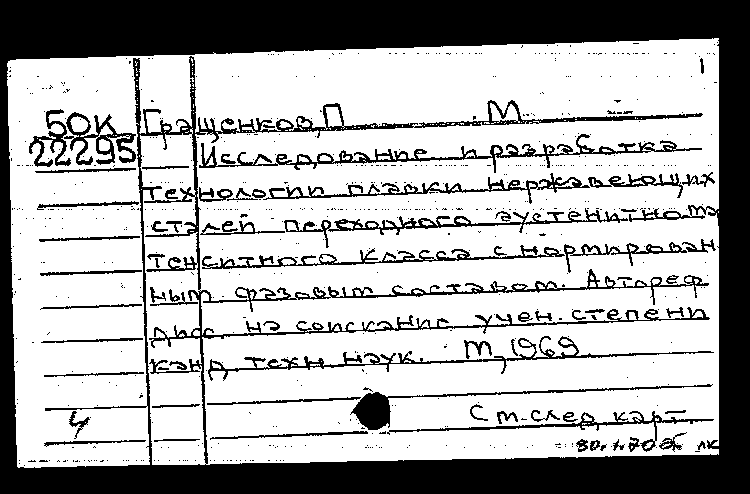 1
БОК Гращенков, П М
22295 Исследование и разработка
технологии плавки нержавеющих
сталей переходного аустенитно ма
тенситного класса с нормирован
ным фазовым составом. Автореф
дисс. на соискание учен. степени
канд. техн. наук. М, 1969
4 См. след. карт.